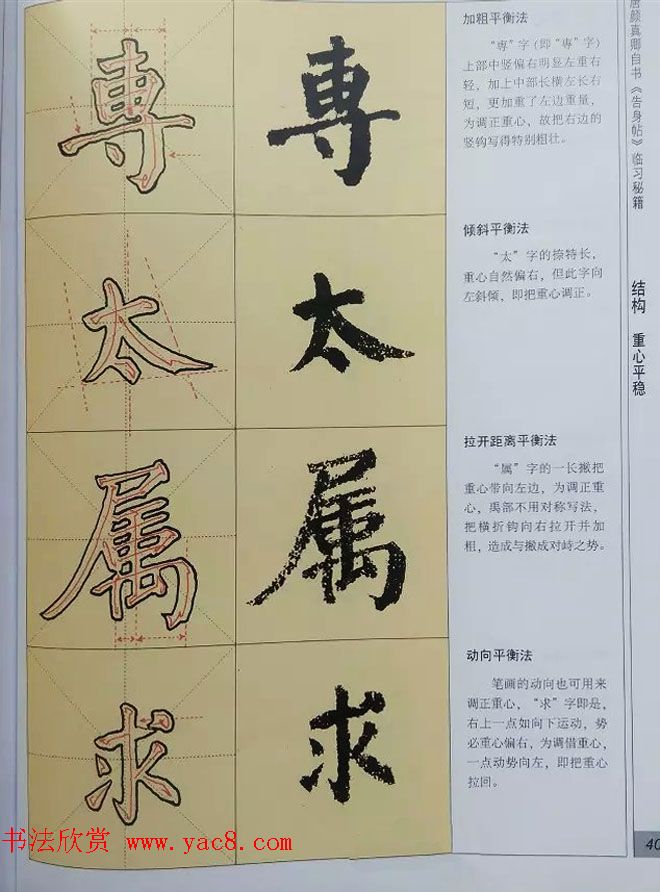 唐颜真卿自书《告身帖》临习秘籍
结构 重心平稳
専
加粗平衡法
“専”字(即“專”字)
上部中竖偏右明显左重右
轻，加上中部长横左长右
短，更加重了左边重量，
为调正重心，故把右边的
竖钩写得特别粗壮。
太
倾斜平衡法
“太”字的捺特长，
重心自然偏右，但此字向
左斜倾，即把重心调正。
属
拉开距离平衡法
“属”字的一长撇把
重心带向左边，为调正重
心，禹部不用对称写法，
把横折钩向右拉开并加
粗，造成与撇成对峙之势。
求
动向平衡法
笔画的动向也可用来
调正重心，“求”字即是，
右上一点如向下运动，势
必重心偏右，为调借重心，
一点动势向左，即把重心
拉回。
书法欣赏 www.yac8.com
40